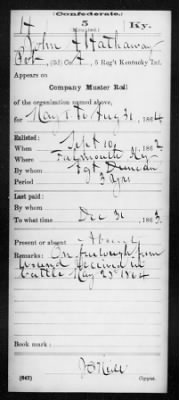 (Confederate.)
H 5 Ky.
(Mounted.)
John Hathaway
Pvt., (2d) Co. A, 5 Reg't Kentucky Inf.
Appears on
Company Muster Roll
of the organization named above,
for May 1 to Aug 31, 1864
Enlisted:
When Sept 10, 1862
Where Falmouth Ky
By whom Sgt Duncan
Period 3 yrs
Last paid:
By whom
To what time Dec 31, 1863
Present or absent Absent
Remarks: On furlough from
wound received in
battle May 25 1864
Book mark:
(642) Copyist.